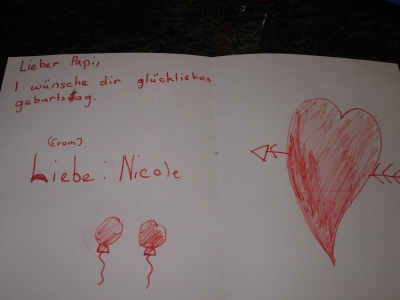 Lieber Papi,
I wünsche dir glückliches
geburtstag.
(from)
Liebe: Nicole